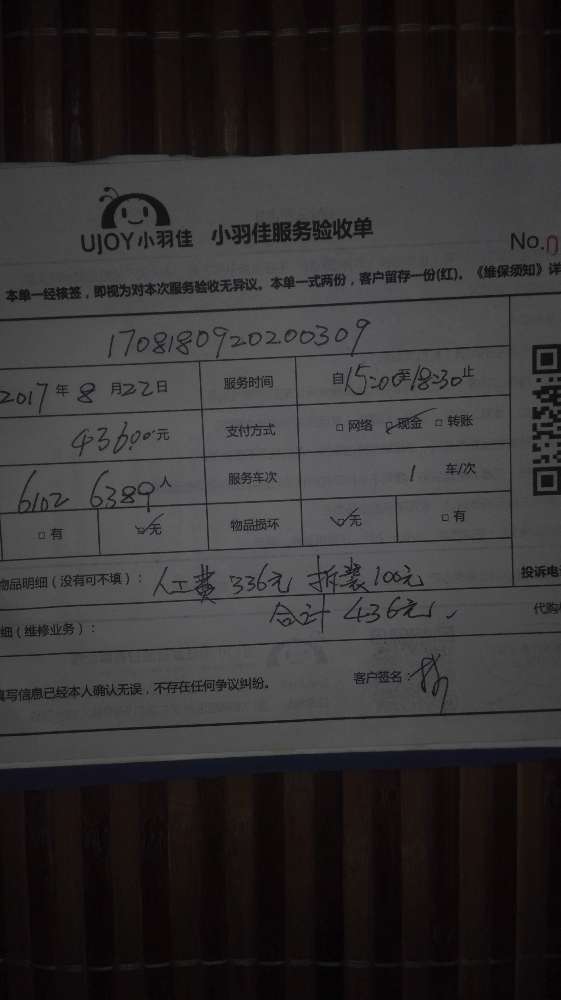 UJOY小羽佳 小羽佳服务验收单
No.0
本单一经核签，即视为对本次服务验收无异议。本单一式两份，客户留存一份(红)。《维保须知》详
1708180920200309
2017年8月22日 服务时间 自15:00至18:30止
436.00元 支付方式 □网络 ☑现金 □转账
6102 6389人 服务车次 1 车/次
□有 ☑无 物品损坏 ☑无 □有
物品明细（没有可不填）： 人工费336元 拆装100元
投诉电
合计 436元
细（维修业务）：
代购
填写信息已经本人确认无误，不存在任何争议纠纷。 客户签名：